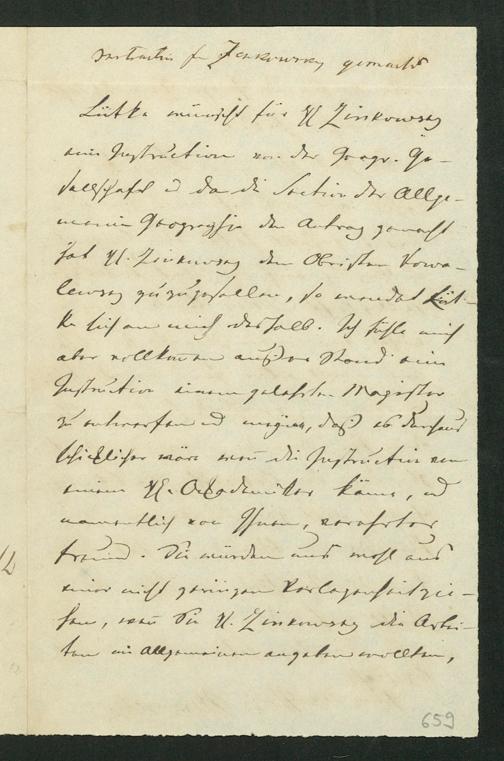 Instruction für Zenkowsky gemacht
Lütke wünscht für H Zinkowsky
eine Instruction von der Geogr. Ge-
sellschaft u da die Section der Allge-
meinen Geographie den Antrag gemacht
hat H. Zinkowsky dem Obristen Kowa-
lewsky zuzugesellen, so wendet Lüt-
ke sich an mich deshalb. Ich fühle mich
aber vollkommen außer Stand eine
Instruction einem gelehrten Magister
zu entwerfen u meine, daß es durchaus
schicklicher wäre wenn die Instruction von
einem H. Academiker käme, u
namentlich von Ihnen, verehrter
Freund. Sie würden uns wohl aus
einer nicht geringen Verlegenheit zie-
hen, wenn Sie H. Zinkowsky die Arbei-
ten im Allgemeinen angeben wollten,
659